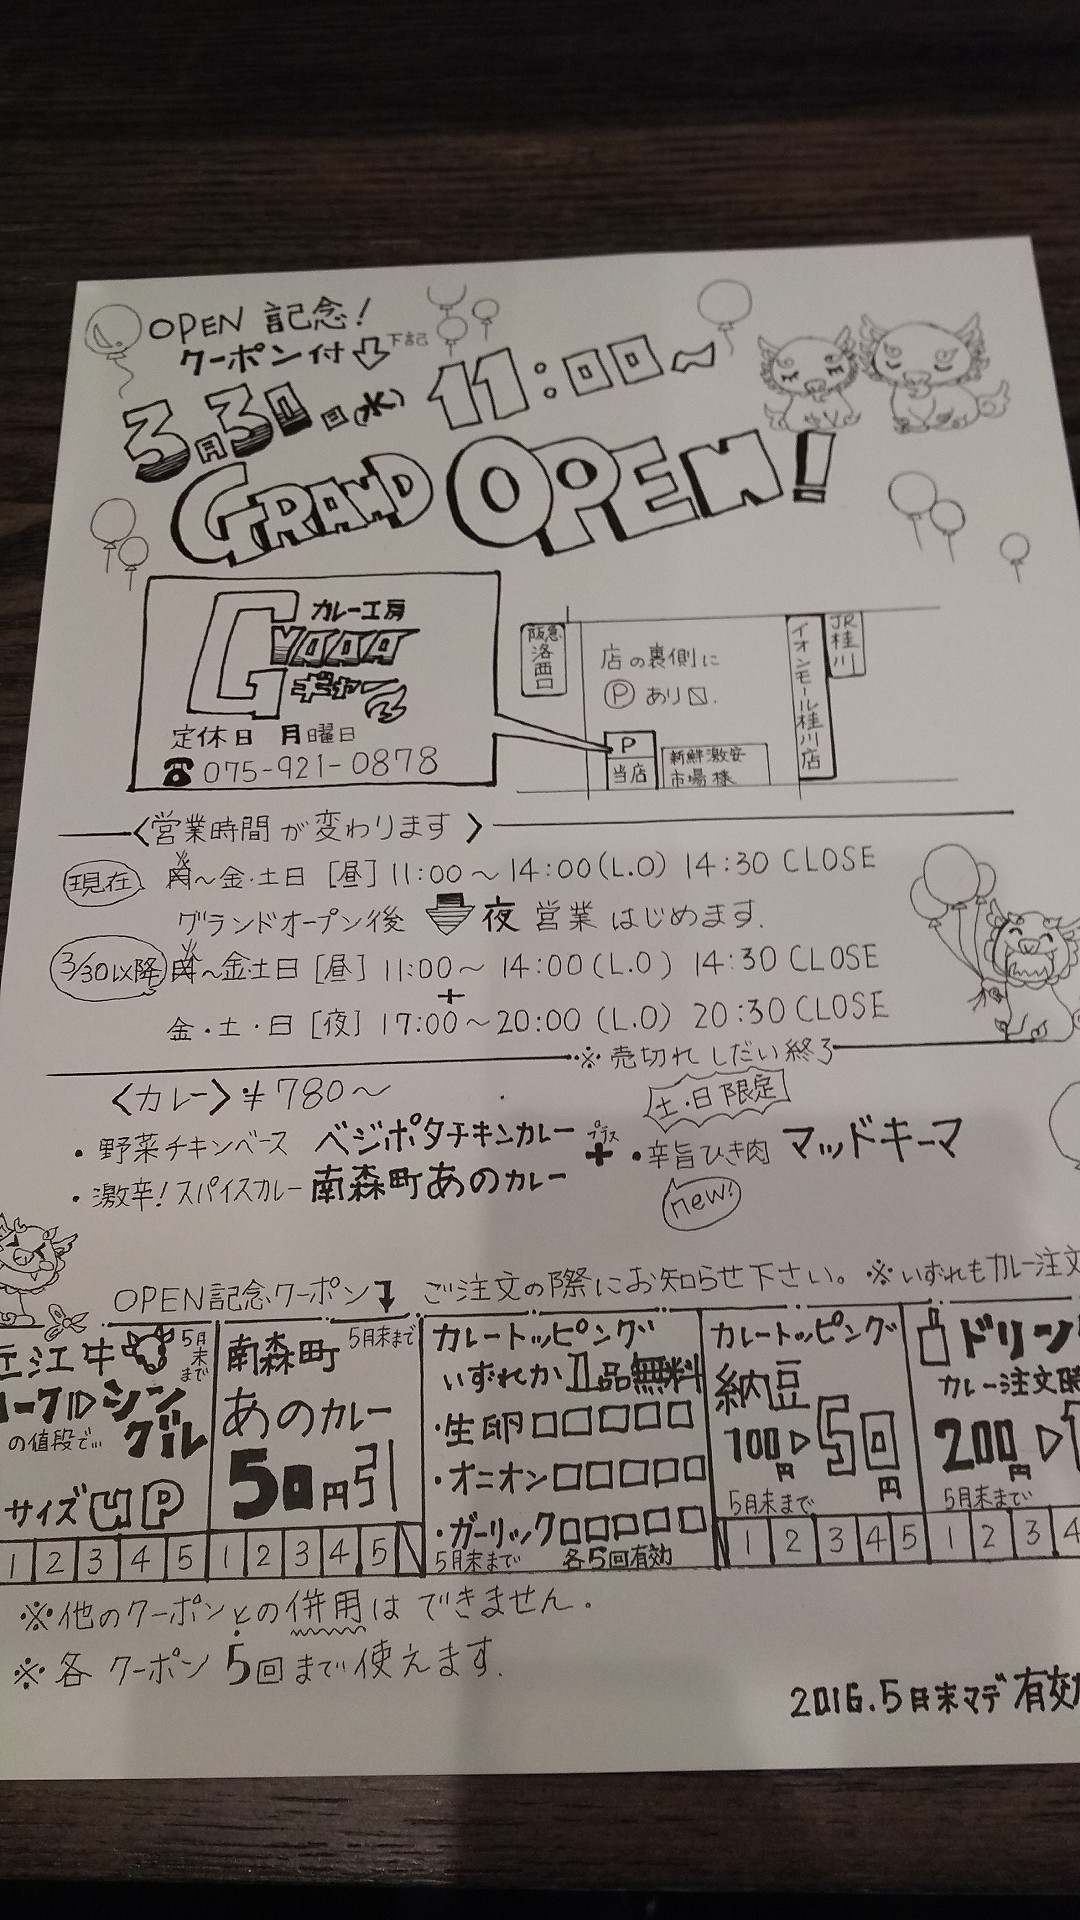 OPEN 記念!
クーポン付 下記
3月30日(水) 11:00~
GRAND OPEN!
カレー工房
GYAAA
ギャー
定休日 月曜日
☎075-921-0878
阪急洛西口
店の裏側に
Ⓟあり〼.
P
当店
新鮮激安
市場様
イオンモール桂川店
JR桂川
〈営業時間が変わります〉
現在 火~金・土日 [昼] 11:00~14:00(L.O) 14:30 CLOSE
グランドオープン後 夜営業はじめます.
3/30以降 火~金土日 [昼] 11:00~14:00(L.O) 14:30 CLOSE
+
金・土・日 [夜] 17:00~20:00 (L.O) 20:30 CLOSE
※売切れしだい終了
〈カレー〉¥780~
・野菜チキンベース ベジポタチキンカレー
・激辛!スパイスカレー 南森町あのカレー
プラス
+
土・日限定
・辛旨ひき肉 マッドキーマ
new!
OPEN記念クーポン ご注文の際にお知らせ下さい。※いずれもカレー注文
近江牛 5月末まで
シングル
の値段で…
サイズUP
1 2 3 4 5
南森町 5月末まで
あのカレー
50円引
1 2 3 4 5
カレートッピング
いずれか1品無料
・生卵□□□□□
・オニオン□□□□□
・ガーリック□□□□□
5月末まで 各5回有効
カレートッピング
納豆
100円▷50円
5月末まで
1 2 3 4 5
ドリン
カレー注文時
200円▷1
5月末まで
1 2 3 4
※他のクーポンとの併用はできません.
※各クーポン5回まで使えます.
2016.5月末マデ有効